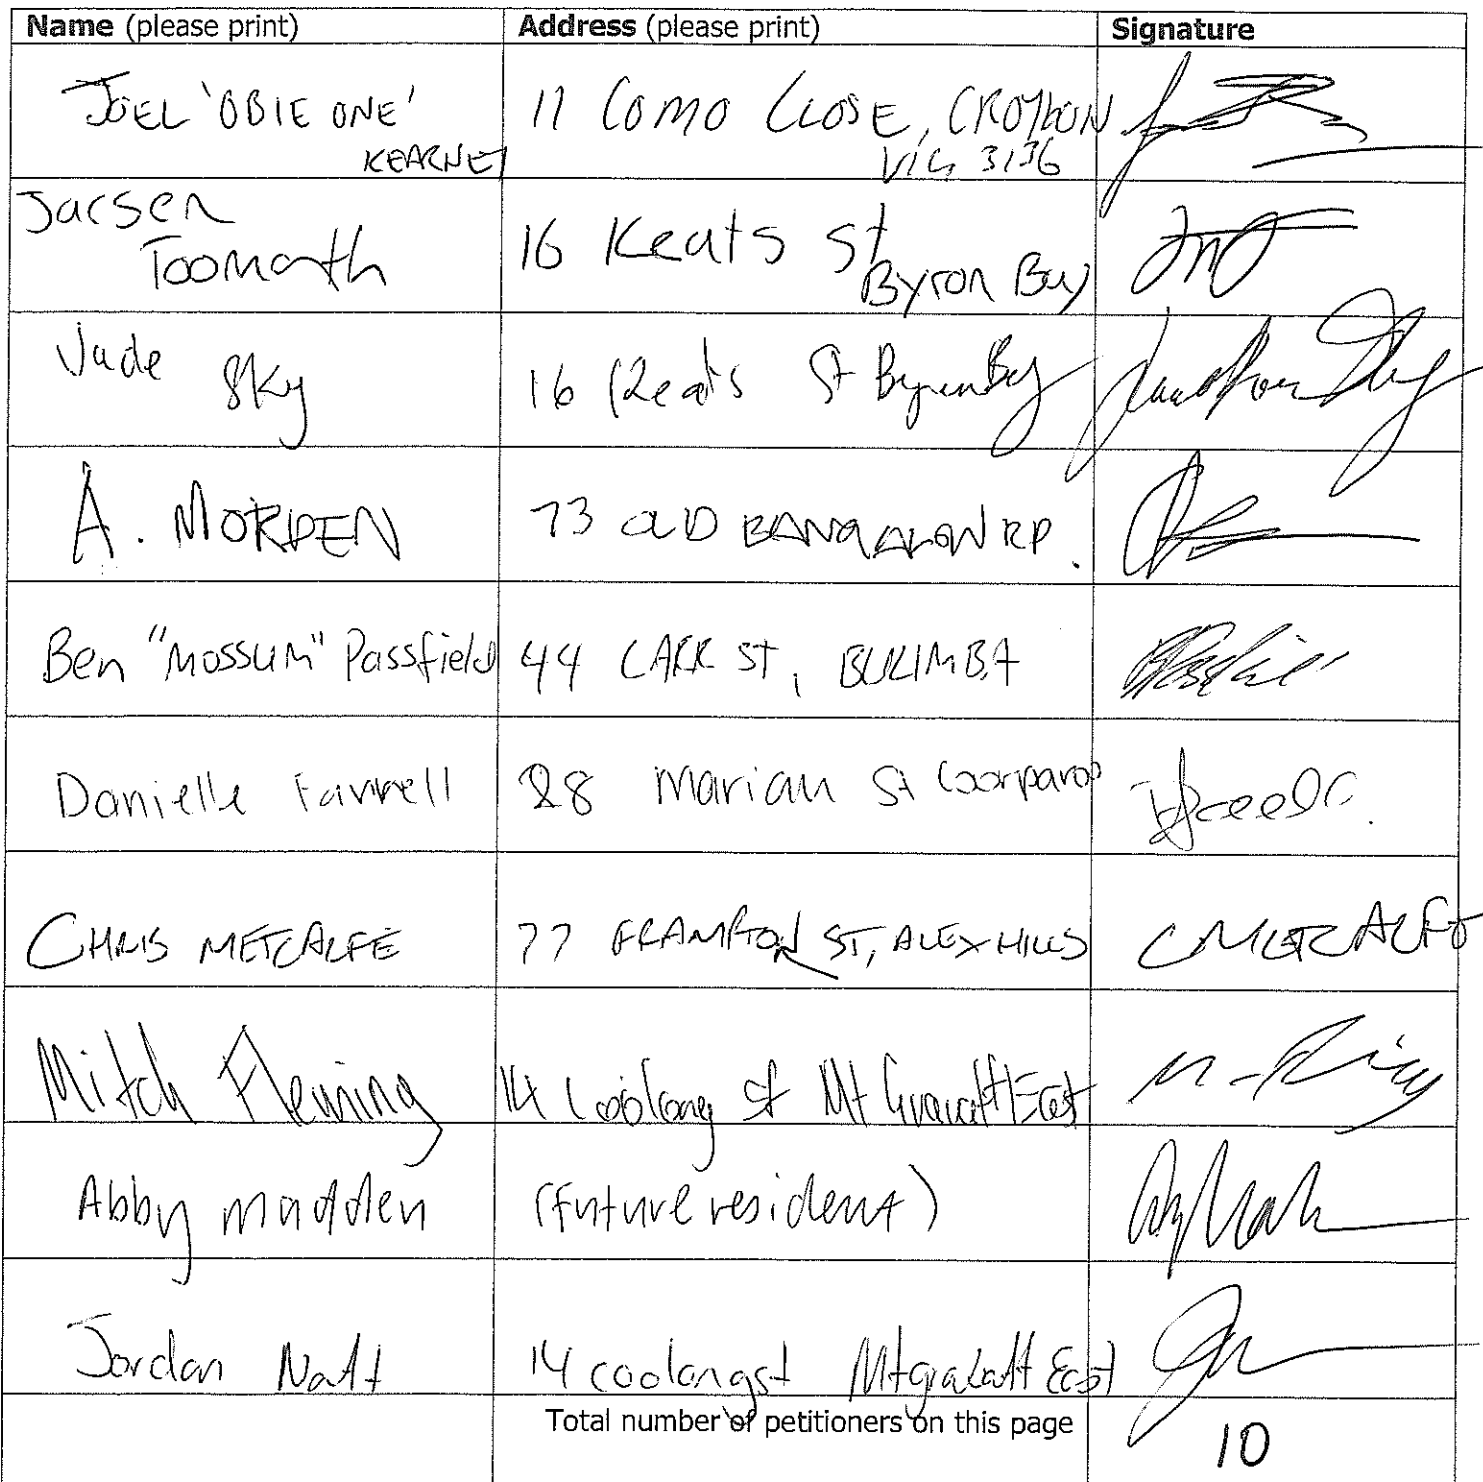 Name (please print) Address (please print) Signature
JOEL 'OBIE ONE' 11 COMO CLOSE, CROYDON
KEARNEY VIC 3136
Jacsen
Toomath 16 Keats St
Byron Bay
Jade Sky 16 Keats St Byron Bay
A. MORDEN 73 OLD BANGALOW RD.
Ben "Mossum" Passfield 44 CARR ST, BULIMBA
Danielle Farrell 28 Marian St Coorparoo
CHRIS METCALFE 77 FRAMPTON ST, ALEX HILLS CMETCALFE
Mitch Fleming 14 Coolong St Mt Gravatt East
Abby Madden (future resident)
Jordan Natt 14 coolongst Mtgravatt East
Total number of petitioners on this page 10